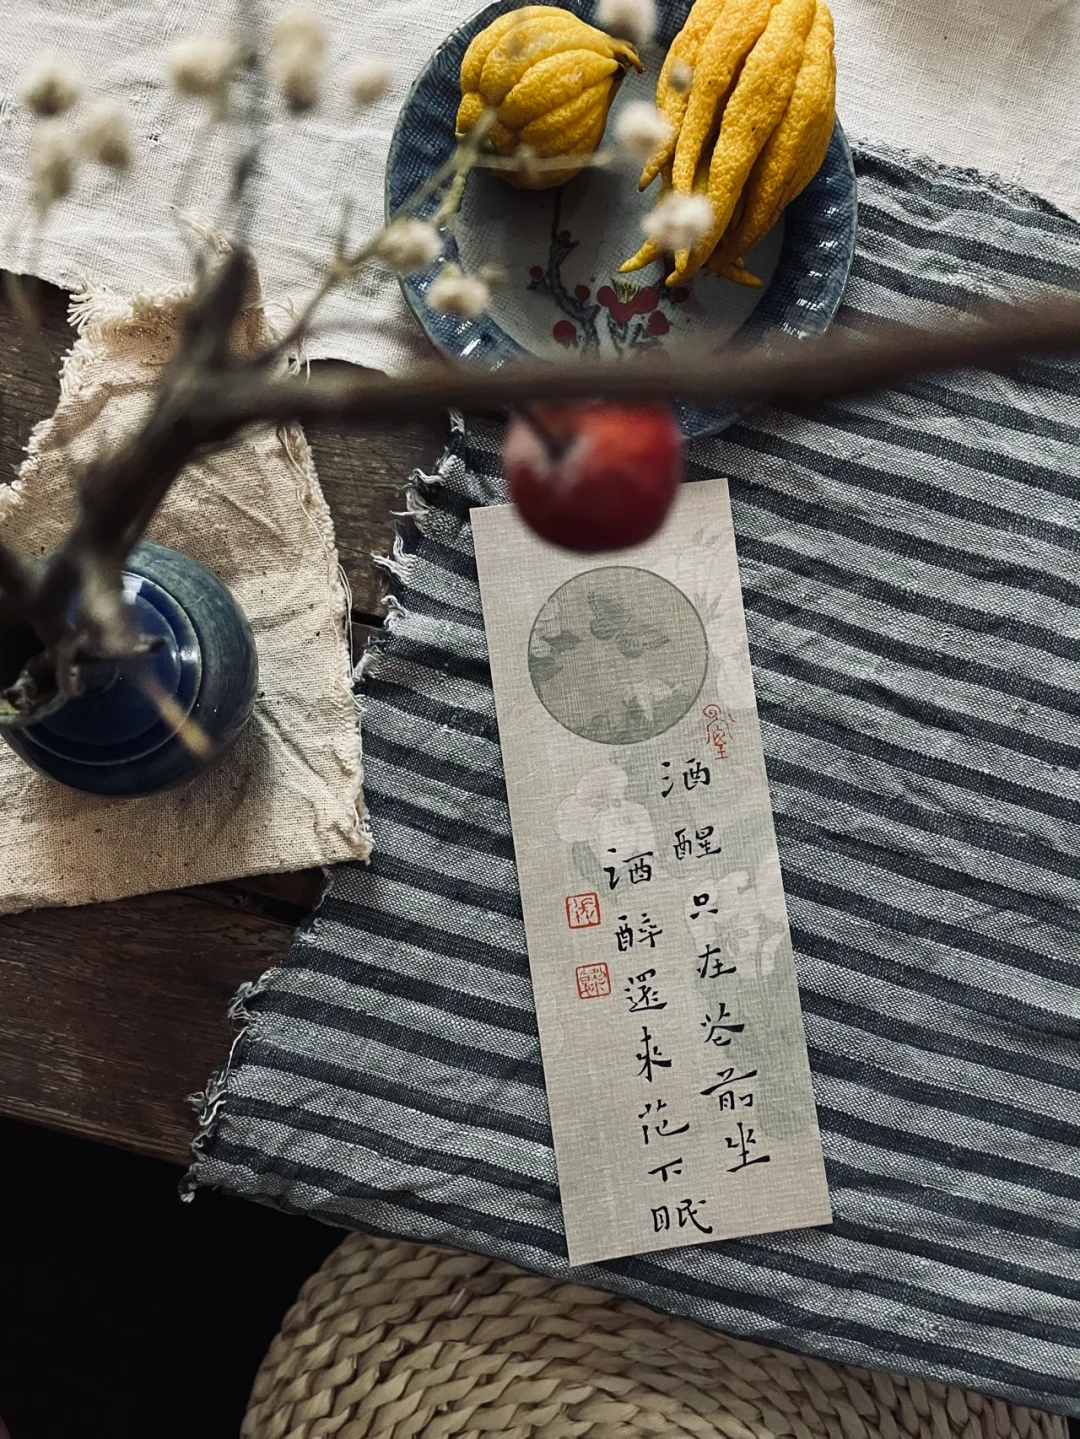 酒醒只在花前坐
酒醉還來花下眠